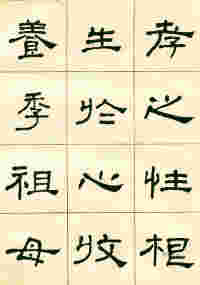 孝之性根
生於心收
養季祖母